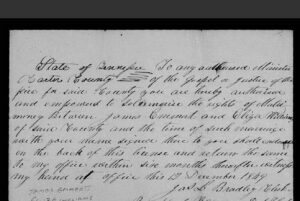 State of Tennessee } To any authorised Minister
Carter County } of the gospel or Justice of the
peace for said County you are hereby authorised
and empowered to solemnise the rights of Matri
mony between James Emmert and Eliza
of said County and the time of such marriage
with your name signed thereto you shall endorse
on the back of this license and return the same
to my office within six months thereafter witness
my hand at office this 12 December 1849
Jas. L. Bradley Clerk